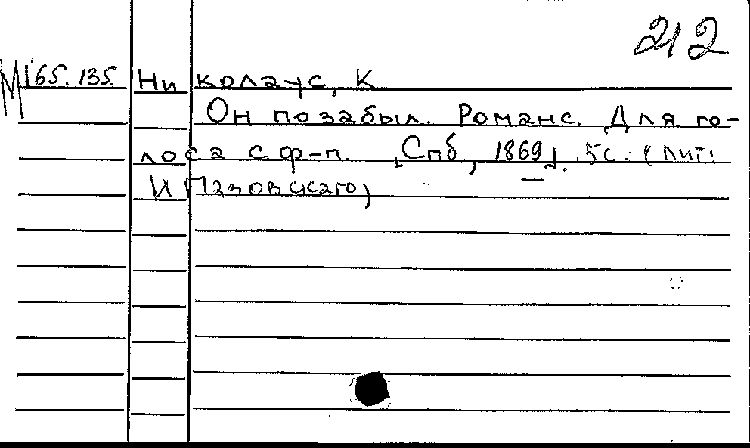 212
М 165.135. Николаус, К
Он позабыл. Романс. Для го-
лоса с ф-п. [Спб, 1869]. 5с. (Лит.
И Пазовскаго)